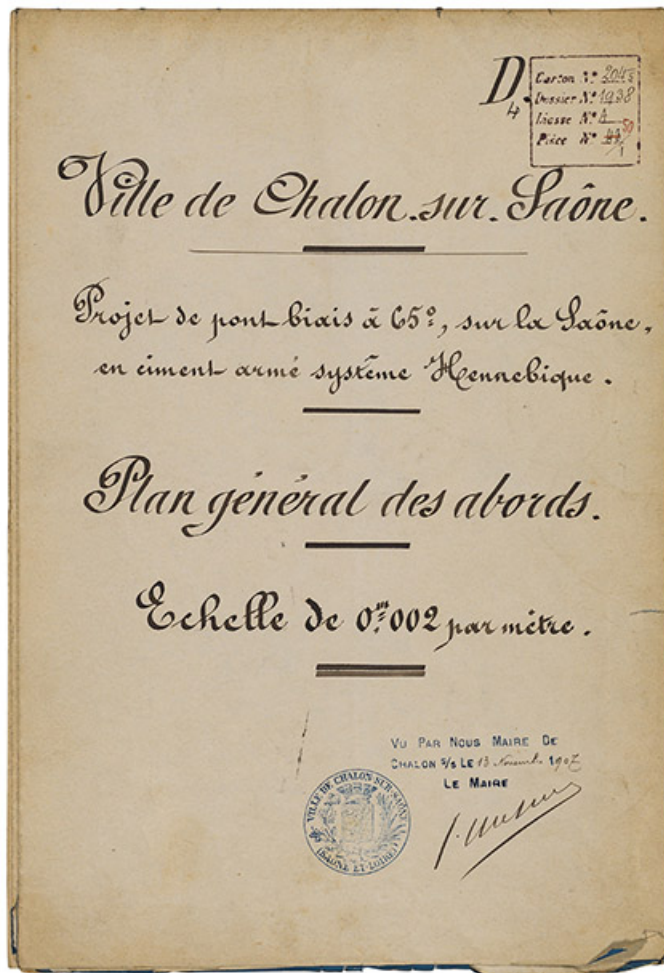 D.
4
Carton Nº 2048
Dossier Nº 1938
Liasse Nº A
Pièce Nº
1
Ville de Chalon-sur-Saône.
Projet de pont biais à 65º, sur la Saône,
en ciment armé système Hennebique.
Plan général des abords.
Echelle de 0.ᵐ002 par mètre.
VU PAR NOUS MAIRE DE
CHALON S/S LE 13 Novembre 1907
LE MAIRE
VILLE DE CHALON-SUR-SAÔNE
(SAONE ET-LOIRE)